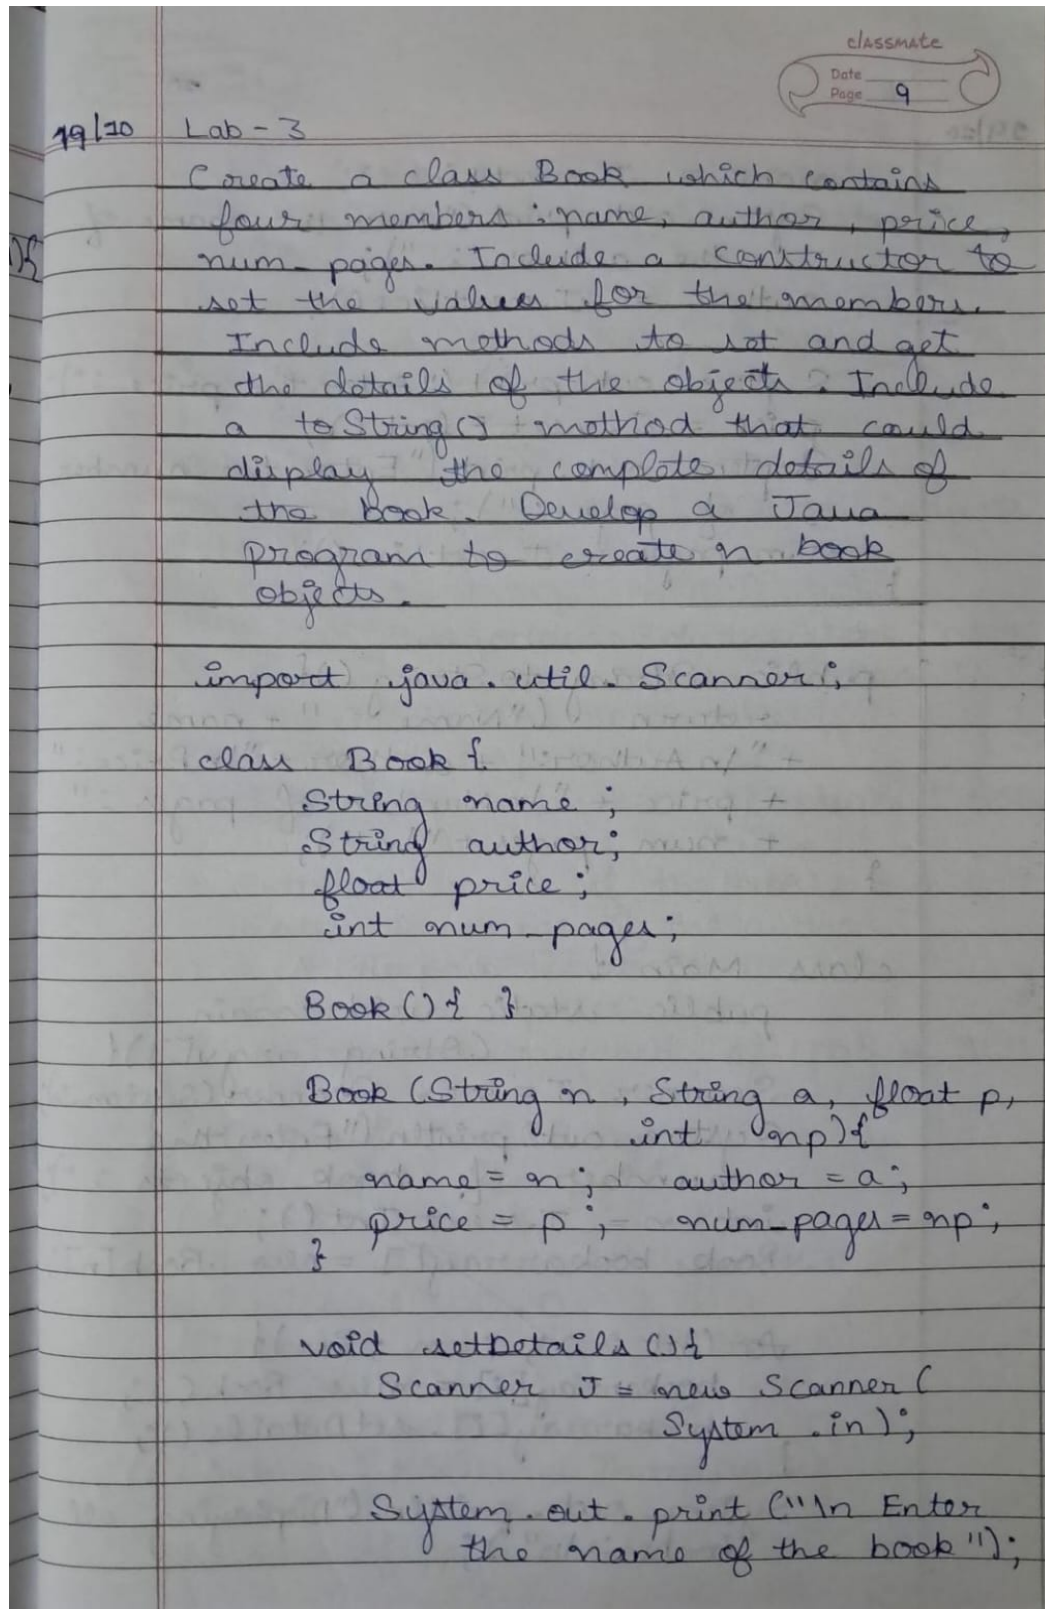 classmate
Date
Page 9
19/10 Lab - 3
Create a class Book which contains
four members : name, author, price,
num_pages. Include a constructor to
set the values for the members.
Include methods to set and get
the details of the objects. Include
a toString() method that could
display the complete details of
the book. Develop a Java
program to create n book
objects.
import java.util.Scanner;
class Book {
String name ;
String author;
float price ;
int num_pages;
Book () { }
Book (String n, String a, float p,
int np) {
name = n ; author = a ;
price = p ; num_pages = np ;
}
void setDetails () {
Scanner J = new Scanner (
System.in);
System.out.print ("\n Enter
the name of the book");